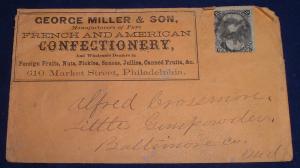 GEORGE MILLER & SON,
Manufacturers of Pure
FRENCH AND AMERICAN
CONFECTIONERY,
And Wholesale Dealers in
Foreign Fruits, Nuts, Pickles, Sauces, Jellies, Canned Fruits, &c.
610 Market Street, Philadelphia.
Alfred Crossmon
Little Gunpowder
Baltimore Co.
Md